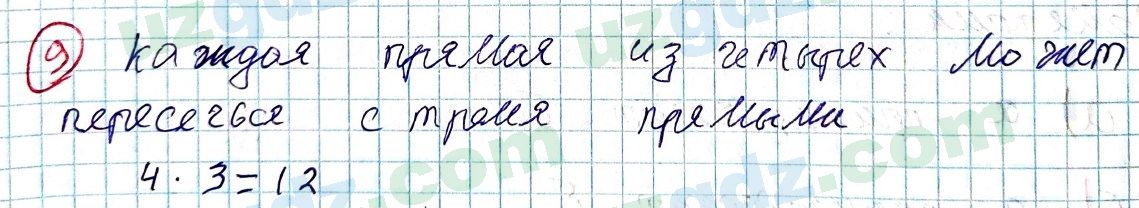 9 каждая прямая из четырех может
пересечься с тремя прямыми
4 · 3 = 12
uzgdz.com